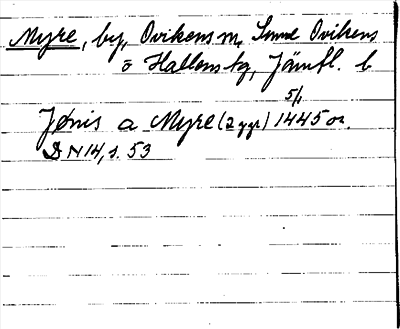 Myre, by, Ovikens sn, Sunne Ovikens
o Hallens tg, Jämtl. l
5/1
Jønis a Myre (2 ggr) 1445 or.
DN 14, s. 53